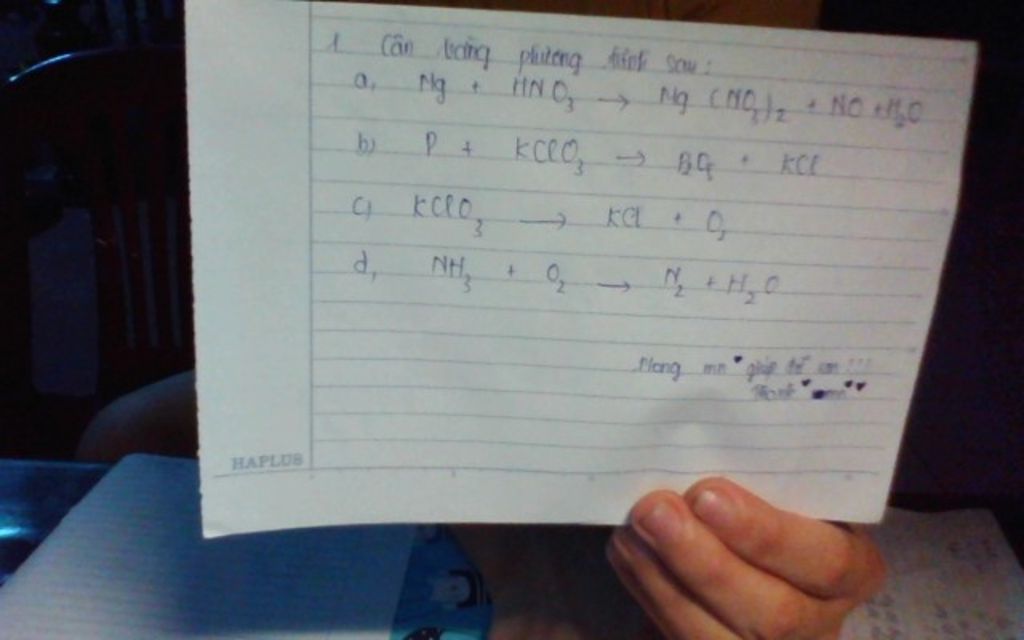 1 Cân bằng phương trình sau:
a, Mg + HNO3 → Mg (NO3)2 + NO + H2O
b) P + KClO3 → P2O5 + KCl
c) KClO3 → KCl + O2
d, NH3 + O2 → N2 + H2O
Mong mn giúp !!!
mn
HAPLUS